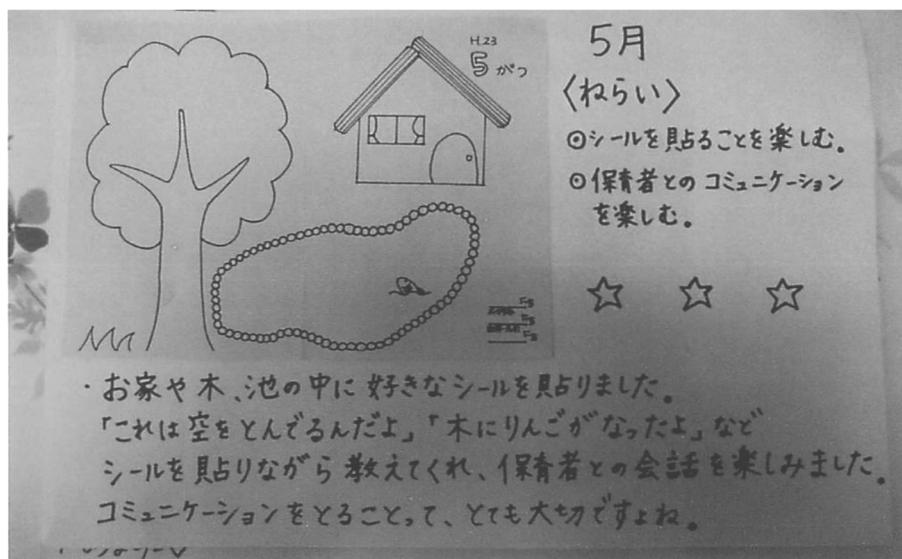 H.23
5がつ
5月
〈ねらい〉
◎シールを貼ることを楽しむ。
◎保育者とのコミュニケーション
を楽しむ。
☆ ☆ ☆
・お家や木、池の中に好きなシールを貼りました。
「これは空をとんでるんだよ」「木にりんごがなったよ」など
シールを貼りながら教えてくれ、保育者との会話を楽しみました。
コミュニケーションをとることって、とても大切ですよね。